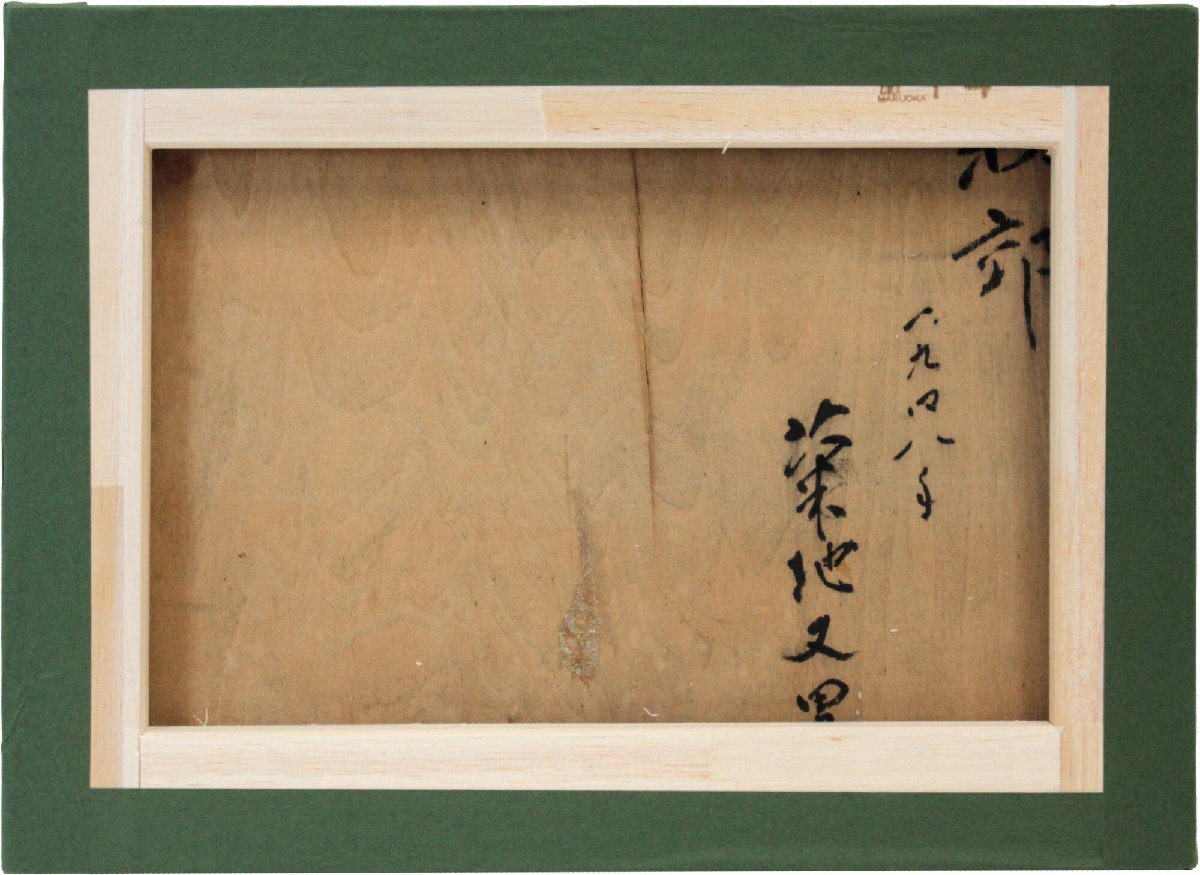 MARUOKA
秋郊
一九四八年
菊地又男